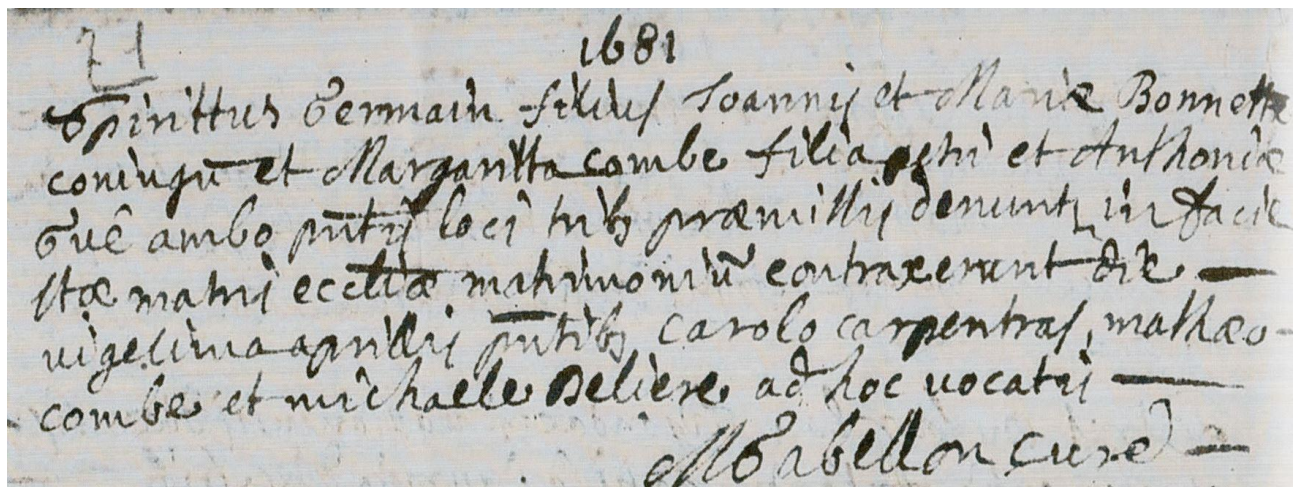 71
1681
Spirittus Germain filius Joannis et Mariæ Bonnette
coniugū et Margaritta combe filia petri et Anthoniæ
ambo pn̄tis loci trib₉ præmissis denunt. in facie
stæ matris eccliæ matrimoniū contraxerunt die
vigesima aprillis pn̄tib₉ Carolo carpentras, mathæo
combe et michaele Deliere ad hoc vocatis
Gabellon Curé